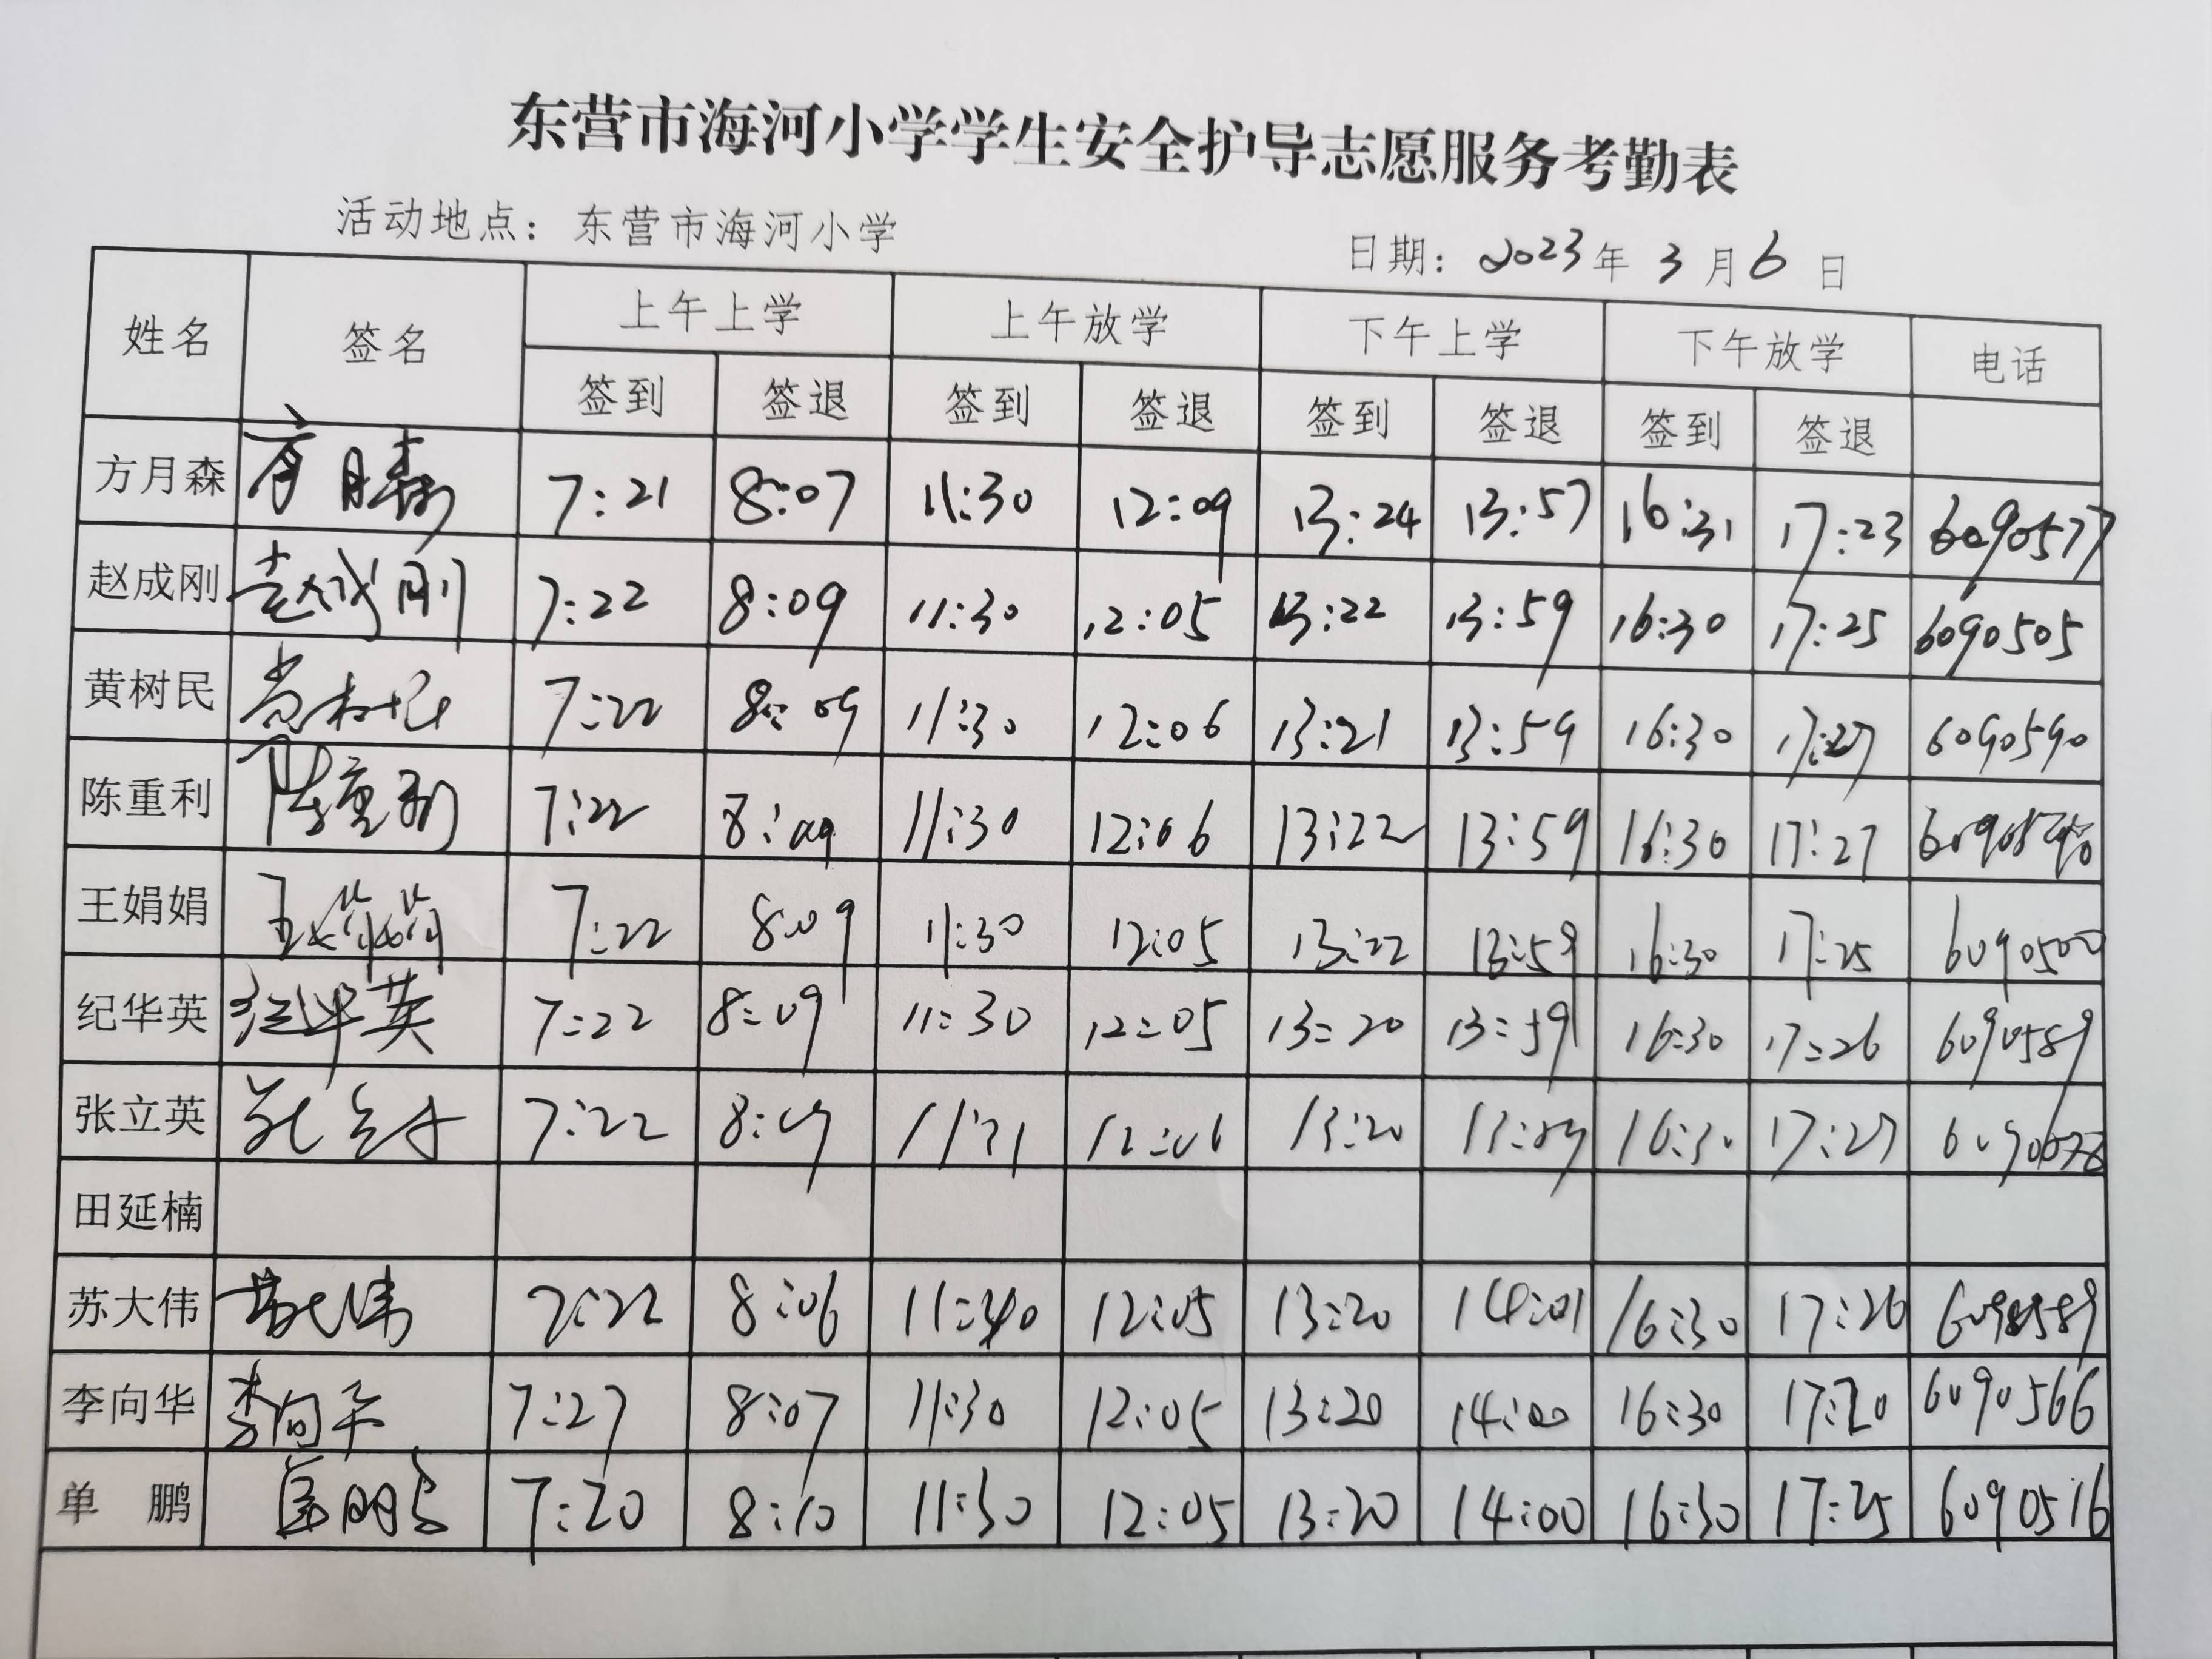 东营市海河小学学生安全护导志愿服务考勤表
活动地点：东营市海河小学 日期：2023年3月6日
姓名 签名 上午上学 上午放学 下午上学 下午放学 电话
签到 签退 签到 签退 签到 签退 签到 签退
方月森 方月森 7:21 8:07 11:30 12:09 13:24 13:57 16:31 17:23 6090577
赵成刚 赵成刚 7:22 8:09 11:30 12:05 13:22 13:59 16:30 17:25 6090505
黄树民 黄树民 7:22 8:09 11:30 12:06 13:21 13:59 16:30 17:27 6090590
陈重利 陈重利 7:22 8:09 11:30 12:06 13:22 13:59 16:30 17:27
王娟娟 王娟娟 7:22 8:09 11:30 12:05 13:22 13:59 16:30 17:25 6090500
纪华英 纪华英 7:22 8:09 11:30 12:05 13:20 13:59 16:30 17:26 6090589
张立英 张立英 7:22 8:09 11:31 12:06 13:20 13:59 16:30 17:27
田延楠
苏大伟 苏大伟 7:22 8:06 11:40 12:05 13:20 14:01 16:30 17:26 6090589
李向华 李向华 7:27 8:07 11:30 12:05 13:20 14:00 16:30 17:20 6090566
单 鹏 单鹏 7:20 8:10 11:30 12:05 13:20 14:00 16:30 17:25 6090516